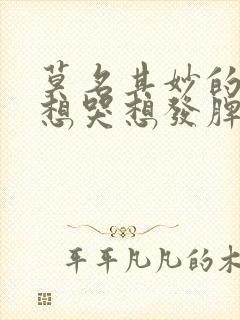 莫名其妙的
想哭想發脾
平平凡凡的木